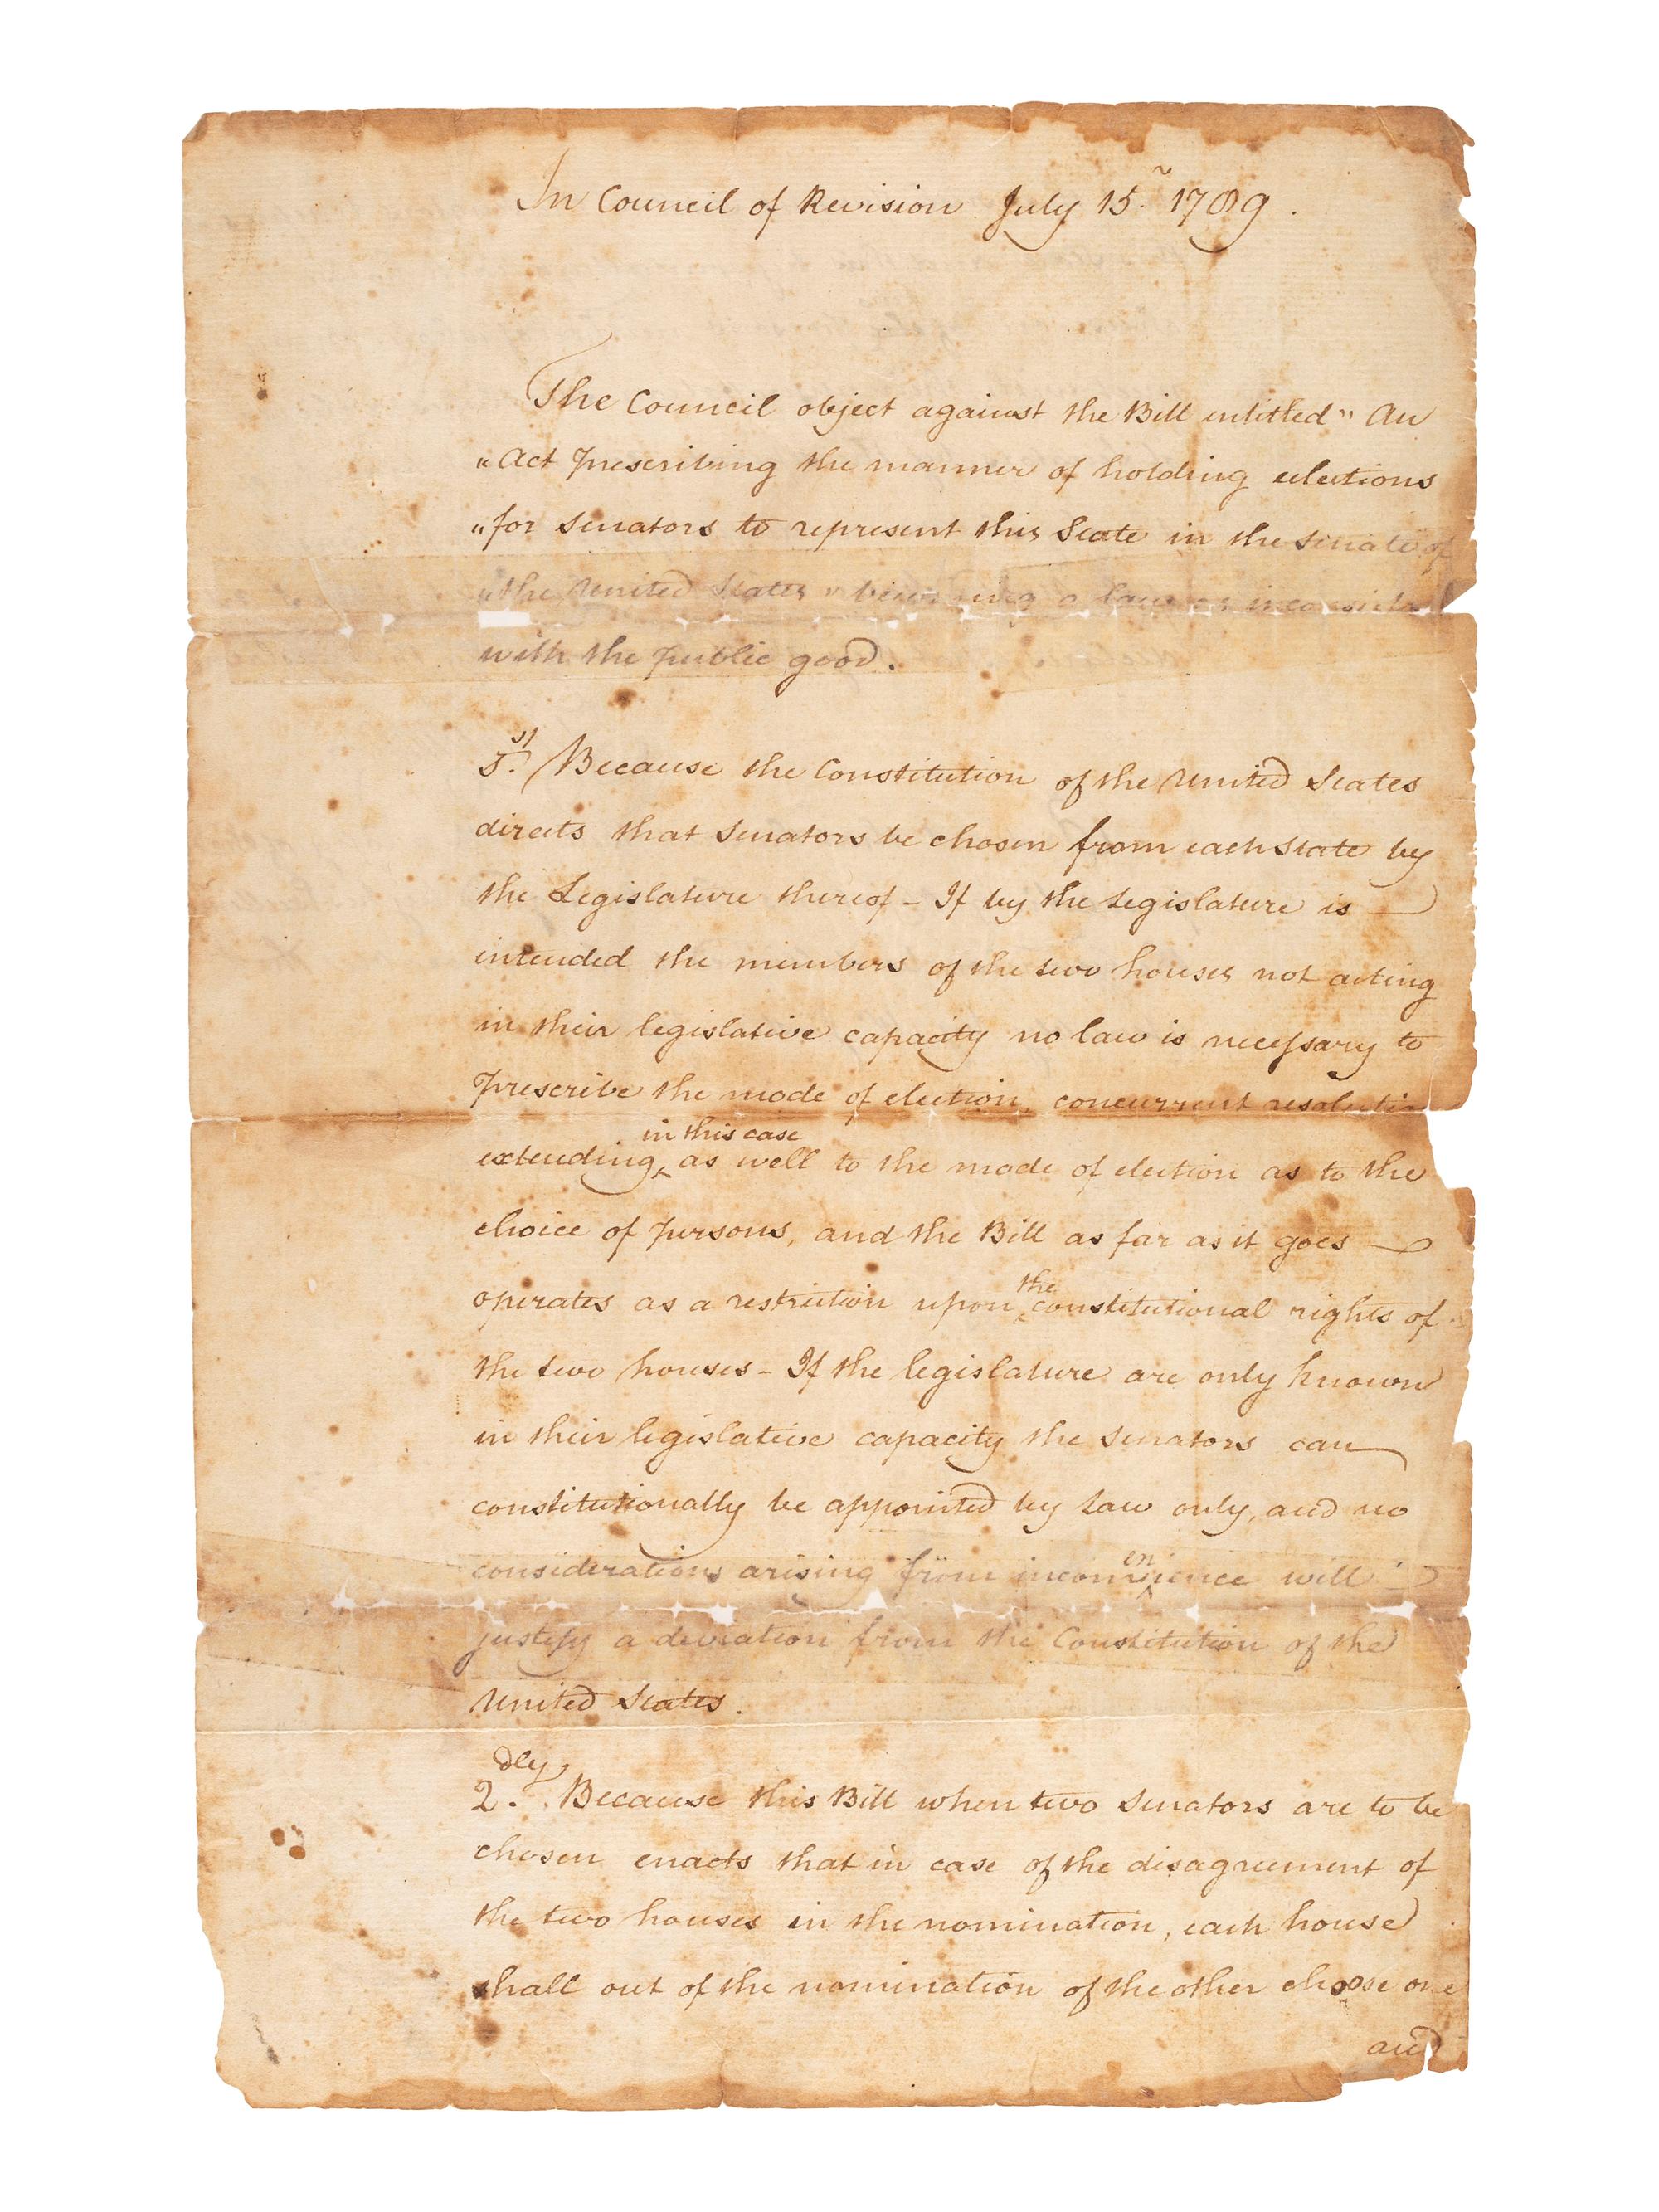 In Council of Revision July 15. 1789.
The Council object against the Bill intitled " An
" Act prescribing the manner of holding elections
" for Senators to represent this State in the Senate of
" the United States " becoming a law as inconsistent
with the public good.
1st. Because the Constitution of the United States
directs that Senators be chosen from each State by
the Legislature thereof - If by the Legislature is
intended the members of the two houses not acting
in their legislative capacity no law is necessary to
prescribe the mode of election, concurrent resolution
in this case
extending ^ as well to the mode of election as to the
choice of persons, and the Bill as far as it goes
the
operates as a restriction upon ^ constitutional rights of
the two houses - If the legislature are only known
in their legislative capacity the Senators can
constitutionally be appointed by Law only, and no
en
considerations arising from inconv^ience will
justify a deviation from the Constitution of the
United States.
2dly. Because this Bill when two Senators are to be
chosen enacts that in case of the disagreement of
the two houses in the nomination, each house
shall out of the nomination of the other choose one
and